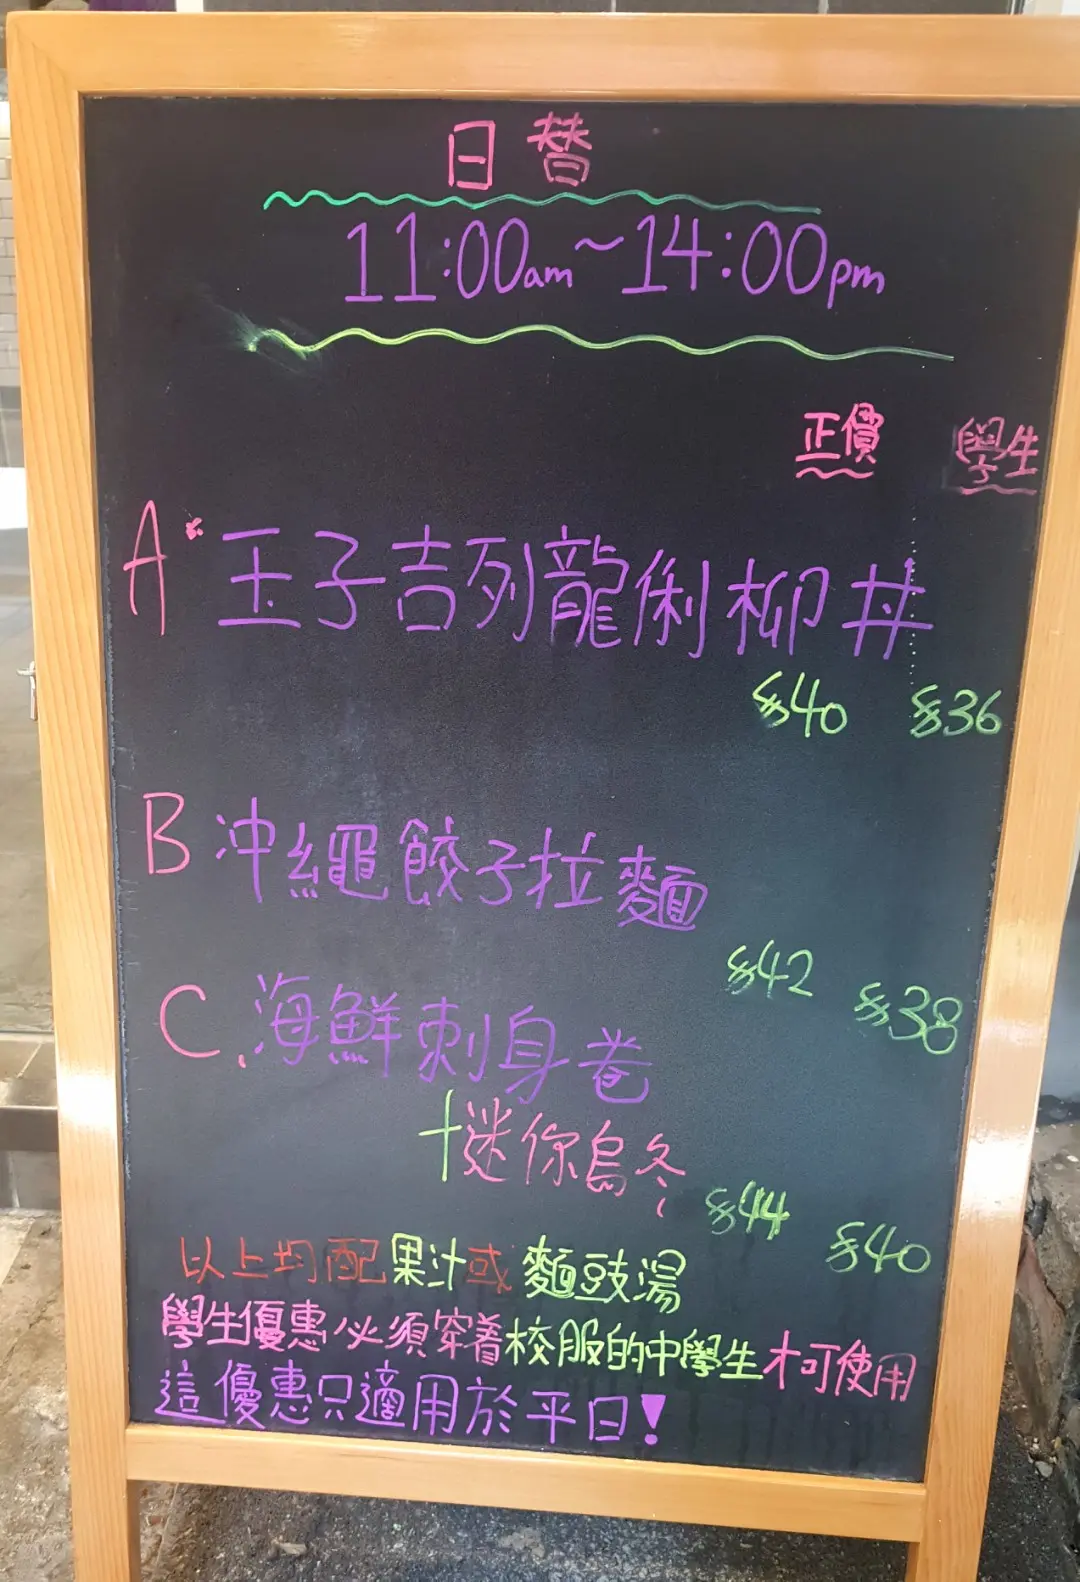 日替
11:00am~14:00pm
正價 學生
A 玉子吉列龍脷柳丼
$40 $36
B 沖繩餃子拉麵
$42 $38
C. 海鮮刺身卷
+迷你烏冬
$44 $40
以上均配果汁或麵豉湯
學生優惠必須穿着校服的中學生才可使用
這優惠只適用於平日!